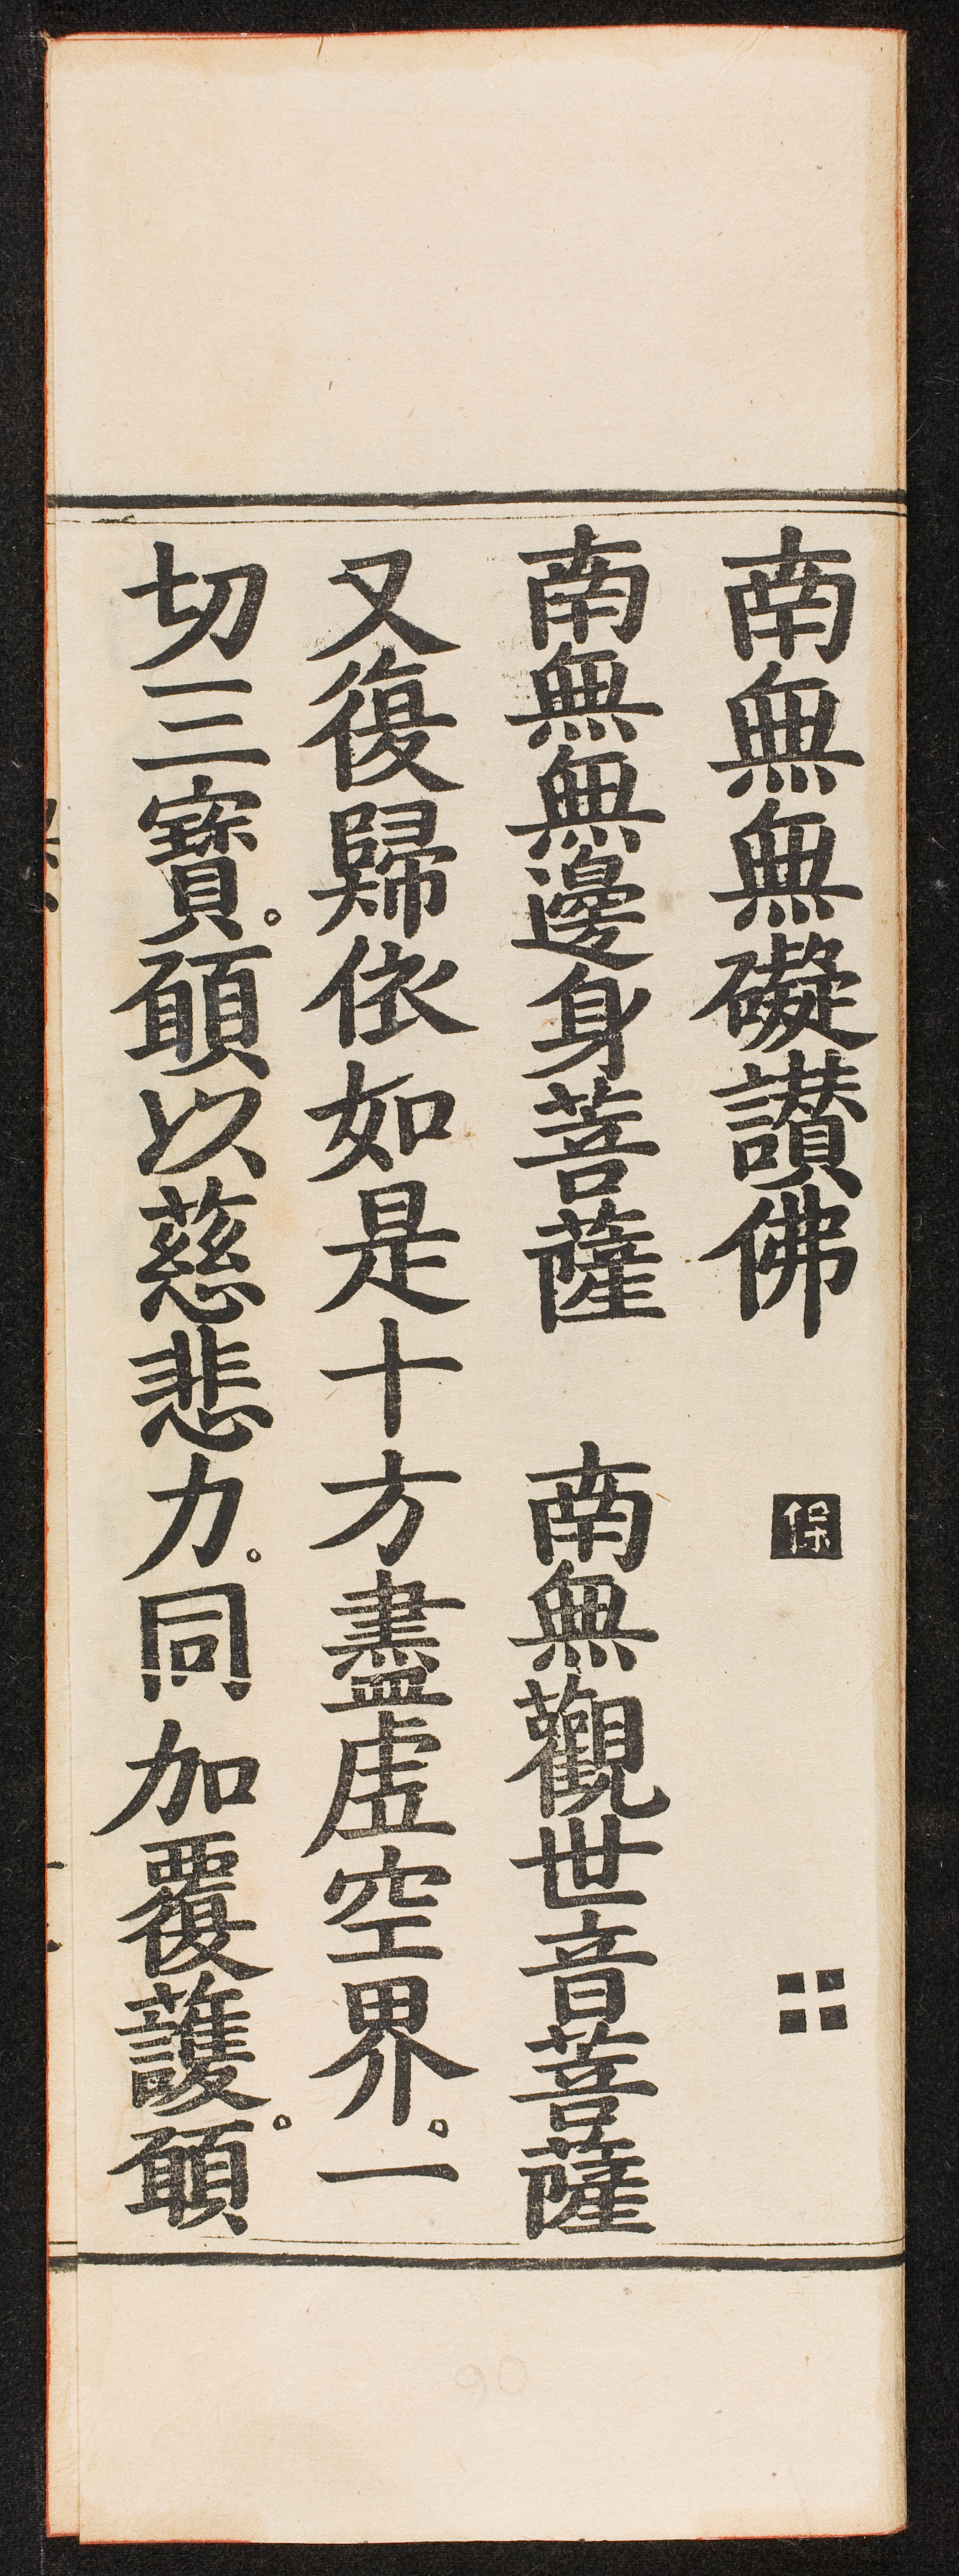 南無無礙讃佛
南無無邊身菩薩　南無觀世音菩薩
又復歸依如是十方盡虛空界。一
切三寶。願以慈悲力。同加覆護。願